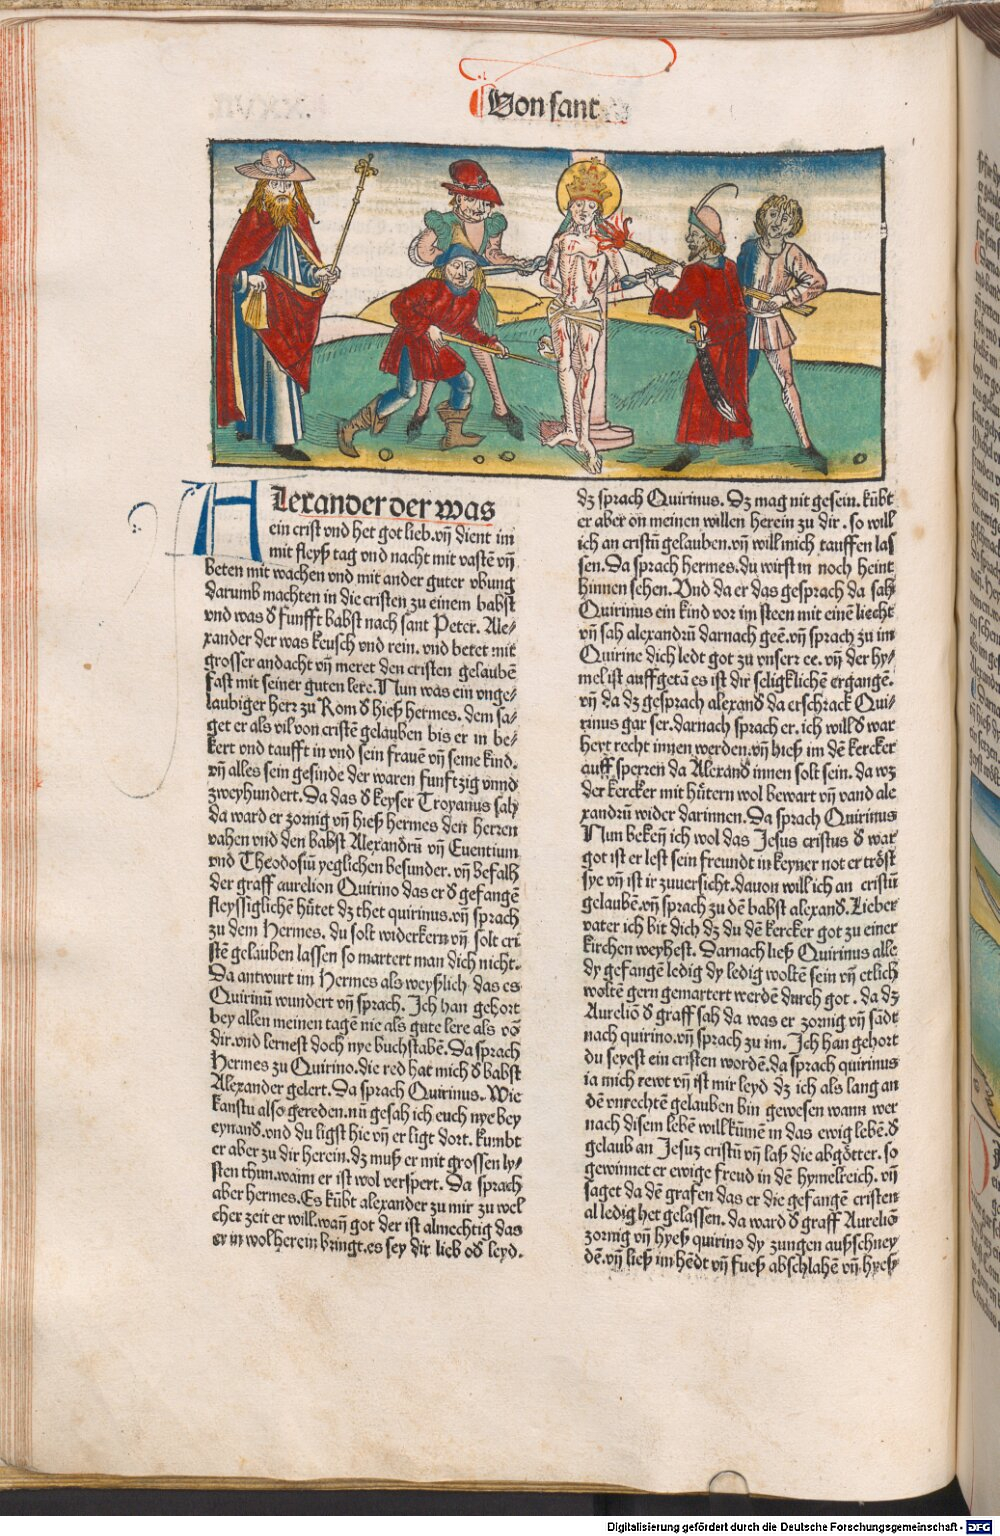 Von sant
Alexander der was
ein crist vnd het got lieb. vñ dient im
mit fleyß tag vnd nacht mit vastē vñ
beten mit wachen vnd mit ander guter vbung
darumb machten in die cristen zu einem babst
vnd was d̕ funfft babst nach sant Peter. Ale⸗
xander der was keusch vnd rein. vnd betet mit
grosser andacht vñ meret den cristen gelaubē
fast mit seiner guten lere. Nun was ein vnge⸗
laubiger herr zu Rom d̕ hieß hermes. dem sa⸗
get er als vil von cristē gelauben bis er in be⸗
kert vnd taufft in vnd sein frauē vñ seine kind.
vñ alles sein gesinde der waren funftzig vnnd
zweyhundert. Da das d̕ keyser Troyanus sah
da ward er zornig vñ hieß hermes den herren
vahen vnd den babst Alexandrū vñ Euentium
vnd Theodosiū yeglichen besunder. vñ befalh
der graff aurelion Quirino das er d̕ gefangē
fleyssiglichē hůtet dz thet quirinus. vñ sprach
zu dem Hermes. du solt widerkern vñ solt cri
stē gelauben lassen so martert man dich nicht.
Da antwurt im Hermes als weyßlich das es
Quirinū wundert vñ sprach. Ich han gehort
bey allen meinen tagē nie als gute lere als vō
dir. vnd lernest doch nye buchstabē. Da sprach
Hermes zu Quirino. die red hat mich d̕ babst
Alexander gelert. Da sprach Quirinus. Wie
kanstu also gereden. nū gesah ich euch nye bey
eynand̕. vnd du ligst hie vñ er ligt dort. kumbt
er aber zu dir herein. dz muß er mit grossen ly⸗
sten thun. wann er ist wol verspert. Da sprach
aber hermes. Es kūbt alexander zu mir zu wel
cher zeit er will. wañ got der ist almechtig das
er in wol herein bringt. es sey dir lieb od̕ leyd.
dz sprach Quirinus. Dz mag nit gesein. kūbt
er aber on meinen willen herein zu dir. so will
ich an cristū gelauben. vñ will mich tauffen las
sen. Da sprach hermes. du wirst in noch heint
hinnen sehen. Vnd da er das gesprach da sah
Quirinus ein kind vor im steen mit einē liecht
vñ sah alexandrū darnach geē. vñ sprach zu im
Quirine dich ledt got zu vnserr ee. vñ der hy⸗
mel ist auffgetā es ist dir seligklichē ergangē.
vñ da dz gesprach alexand̕ da erschrack Qui⸗
rinus gar ser. darnach sprach er. ich will d̕ war
heyt recht innen werden. vñ hieß im dē kercker
auff sperren da Alexand̕ innen solt sein. da wz
der kercker mit hůtern wol bewart vñ vand ale
xandrū wider darinnen. Da sprach Quirinus
Nun bekeñ ich wol das Jesus cristus d̕ war
got ist er lest sein freundt in keyner not er tröst
sye vñ ist ir zuuersicht. dauon will ich an cristū
gelaubē. vñ sprach zu dē babst alexand̕. Lieber
vater ich bit dich dz du dē kercker got zu einer
kirchen weyhest. Darnach ließ Quirinus alle
dy gefangē ledig dy ledig woltē sein vñ etlich
woltē gern gemartert werdē durch got. da dz
Aurelio d̕ graff sah da was er zornig vñ sādt
nach quirino. vñ sprach zu im. Ich han gehort
du seyest ein cristen wordē. da sprach quirinus
ia mich rewt vñ ist mir leyd dz ich als lang an
dē vnrechtē gelauben bin gewesen wann wer
nach disem lebē will kūmē in das ewig lebē. d̕
gelaub an Jesuz cristū vñ laß die abgötter. so
gewinnet er ewige freud in dē hymelreich. vñ
saget da dē grafen das er die gefangē cristen
al ledig het gelassen. da ward d̕ graff Aurelio
zornig vñ hyeß quirino dy zungen außschney
dē. vñ ließ im hēdt vñ fueß abschlahē vñ hyeß
Digitalisierung gefördert durch die Deutsche Forschungsgemeinschaft - DFG